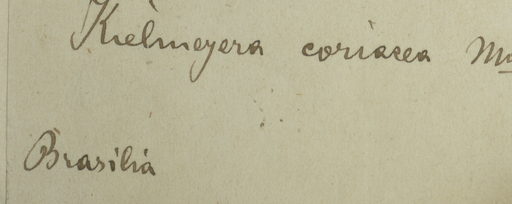 Kielmeyera coriacea
Brasilia